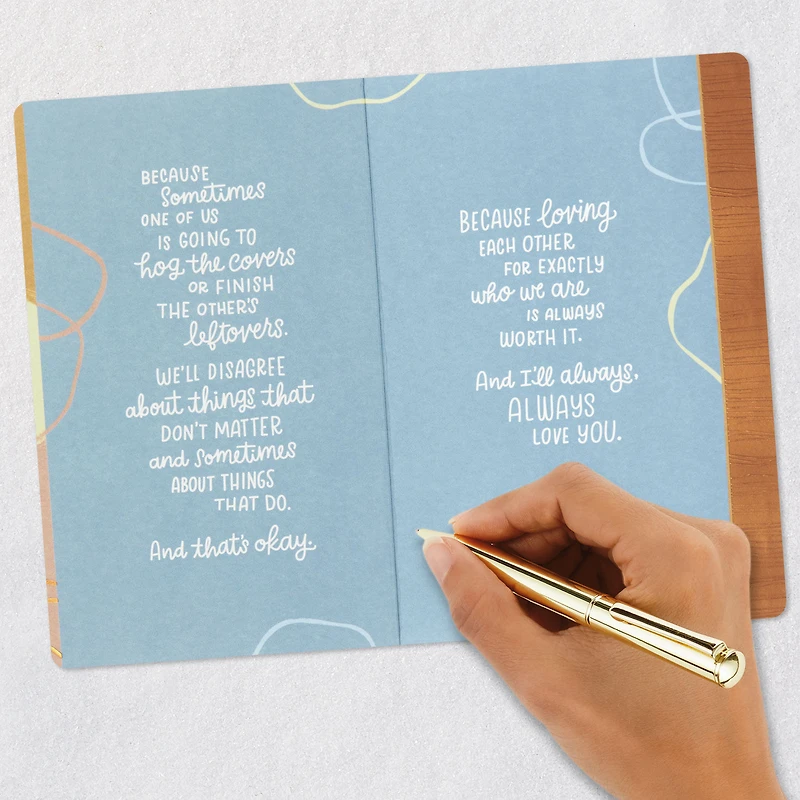 BECAUSE
Sometimes
ONE OF US
IS GOING TO
hog the covers
OR FINISH
THE OTHER'S
leftovers.
WE'LL DISAGREE
about things that
DON'T MATTER
and sometimes
ABOUT THINGS
THAT DO.
And that's okay.
BECAUSE loving
EACH OTHER
FOR EXACTLY
who we are
IS ALWAYS
WORTH IT.
And I'll always,
ALWAYS
LOVE YOU.